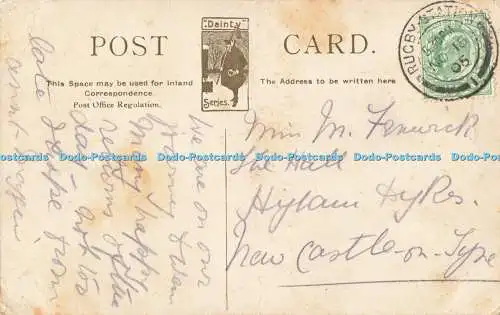 POST CARD.
Dainty
Series.
This Space may be used for Inland
Correspondence.
Post Office Regulation.
The Address to be written here
RUGBY STATION
05
Miss M. Fenwick
The Hall
Hylam Dykes.
New Castle-on-Tyne
We are on our
many happy
returns of the
day - not too
late I hope from
Dodo-Postcards Dodo-Postcards Dodo-Postcards Dodo-Postcards Dodo-Postcards